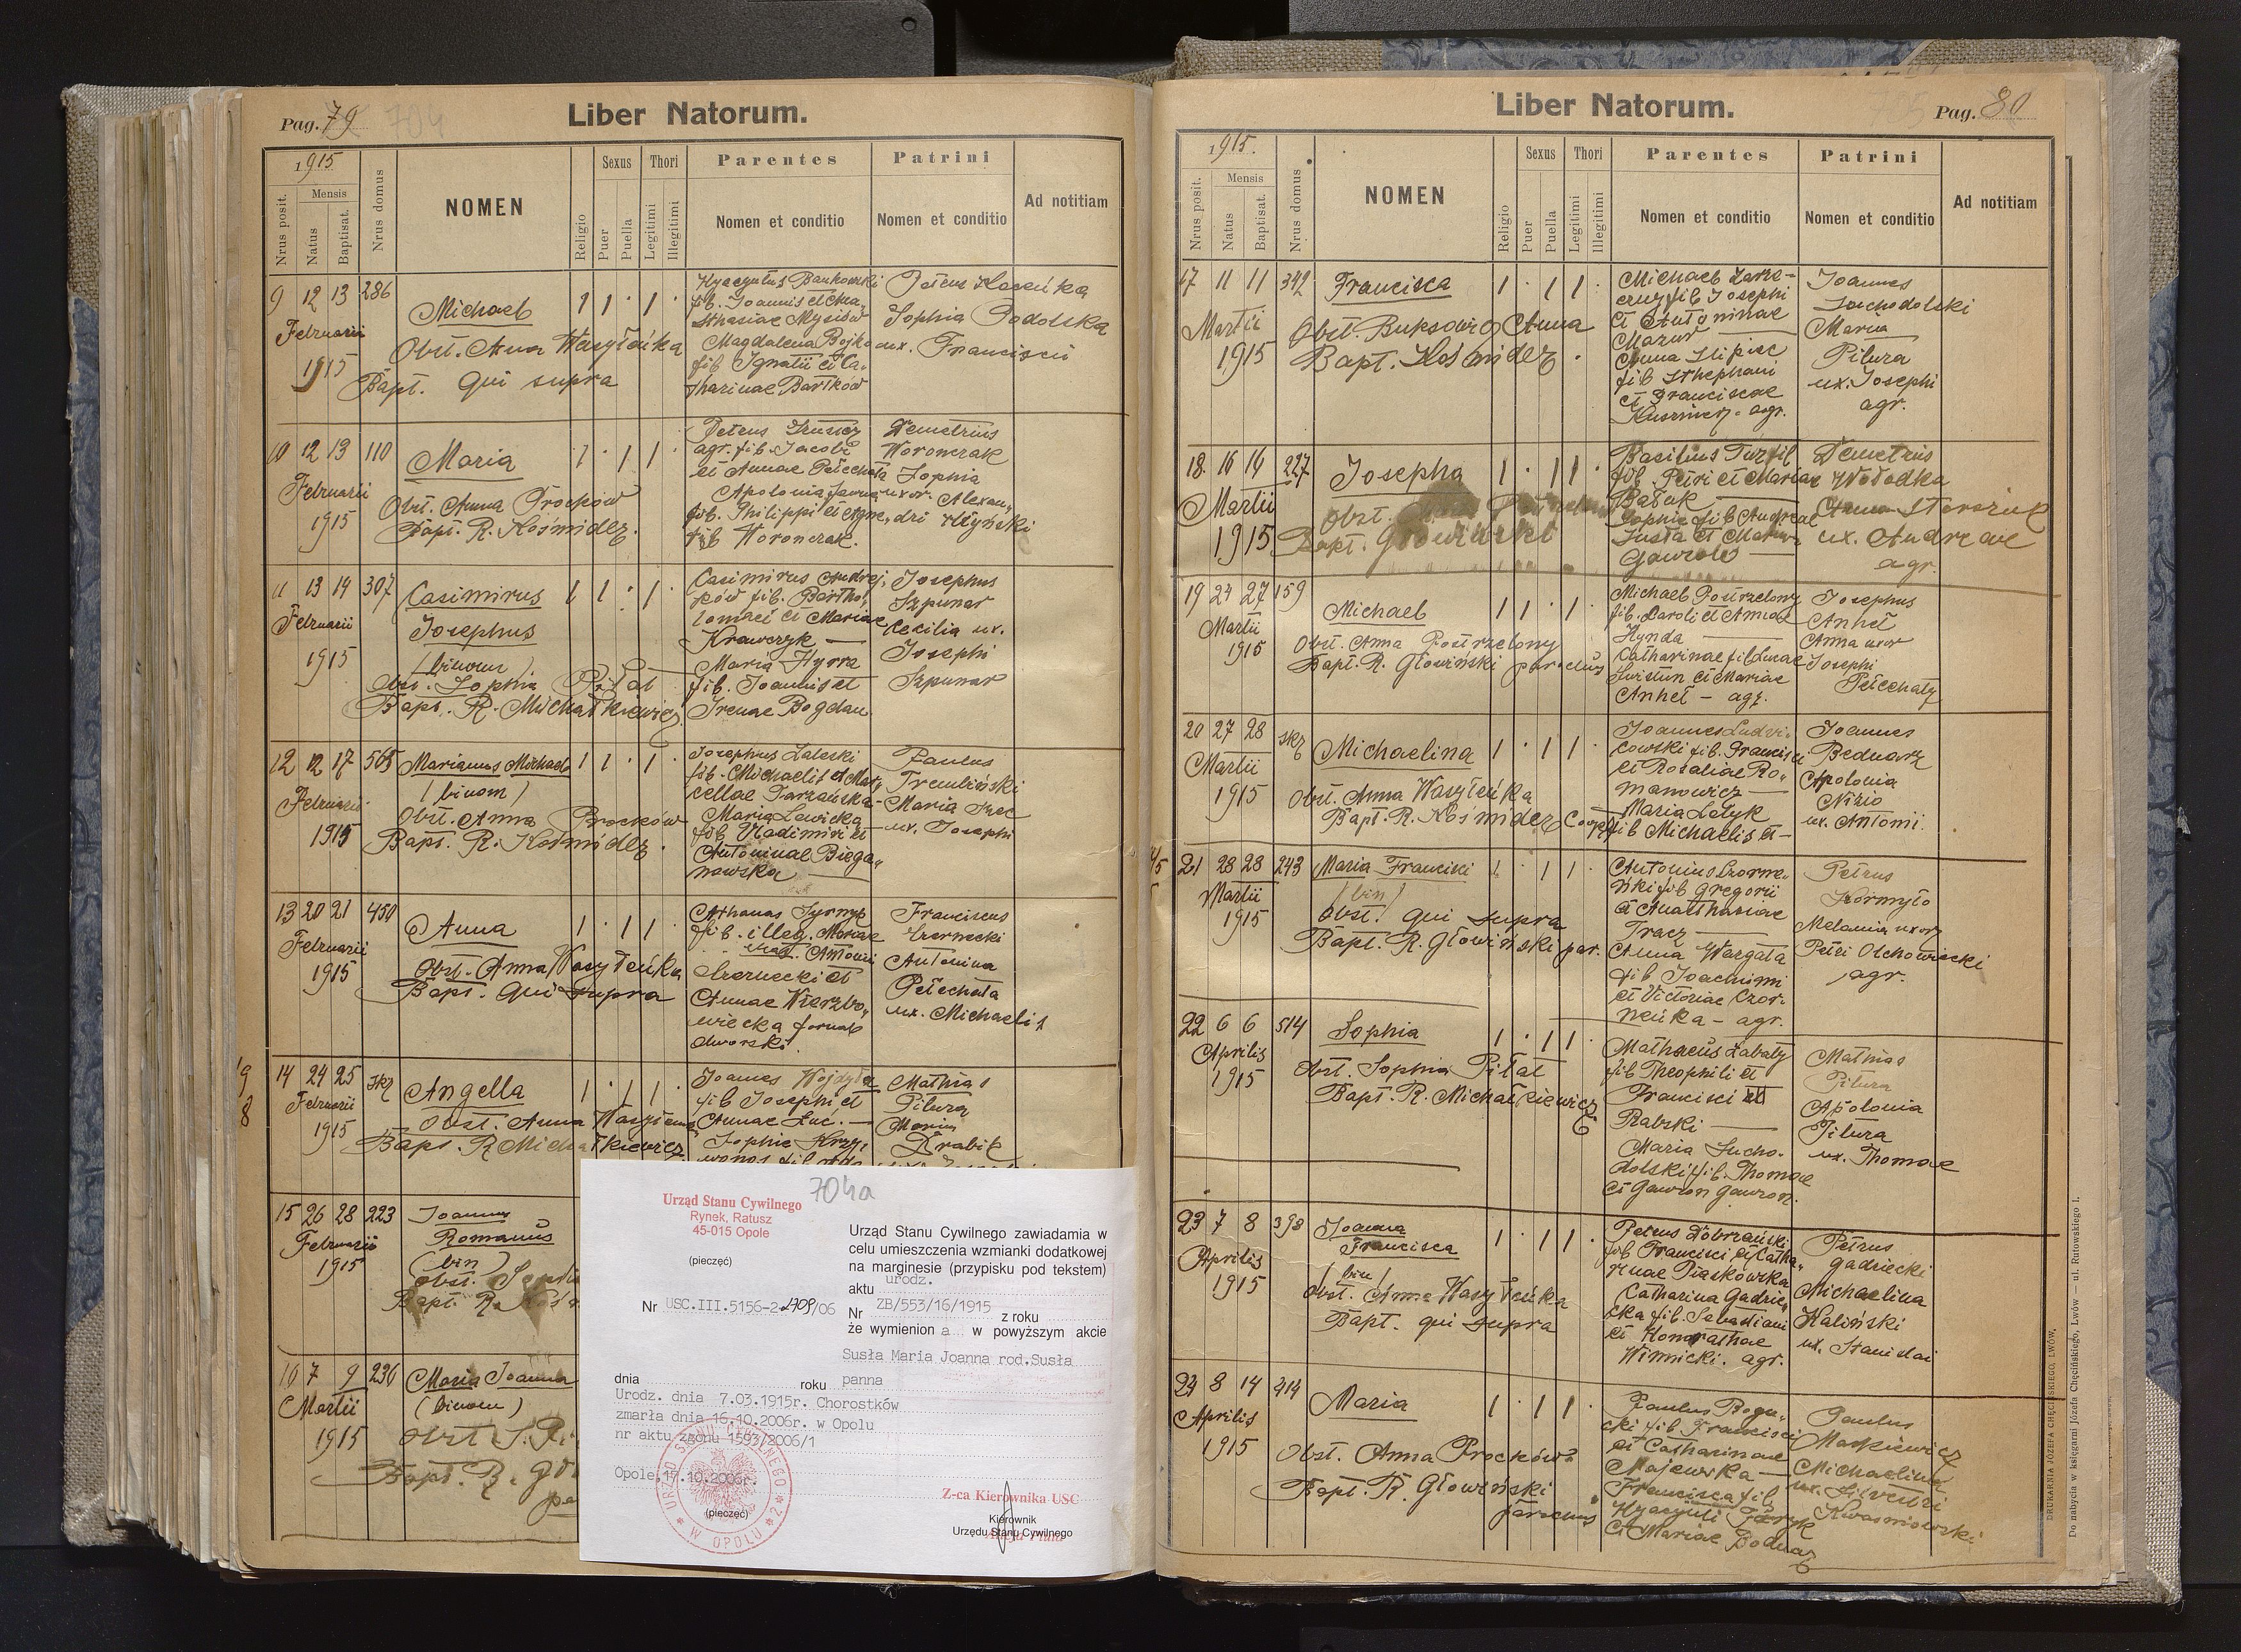 Pag. 79
704
Liber Natorum.
1915
Nrus posit.
Mensis
Natus
Baptisat.
Nrus domus
NOMEN
Religio
Sexus
Puer
Puella
Thori
Legitimi
Illegitimi
Parentes
Nomen et conditio
Patrini
Nomen et conditio
Ad notitiam
9 12 13 286
Februarii
1915
Michael
Obst. Anna Wasyleńka
Bapt. qui supra
fil. Joannis et
Magdalena Bojko
fil. Ignatii et Ca-
tharinae Bartków
Sophia Podolska
ux. Francisci
10 12 13 110
Februarii
1915
Maria
Obst. Anna Procków
Bapt. R. Kośmider.
Petrus
agr. fil. Jacobi
et Annae Pełechata
Apolonia
fil. Philippi et Agne-
Woronczak.
Demetrius
Woronczak
Sophia
uxor. Alexan-
dri
11 13 14 307
Februarii
1915
Casimirus
Josephus
(binom)
Obst. Sophia Piłat
Bapt. R. Michałkiewicz
Casimirus Andrej-
ków fil. Bartho-
lomaei et Mariae
Krawczyk
Maria Hyrra
fil. Joannis et
Irenae Bogdan
Josephus
Szpunar
Cecilia ux.
Josephi
Szpunar
12 12 17 565
Februarii
1915
Marianus Michael
(binom)
Obst. Anna Procków
Bapt. R. Kośmider.
Josephus Zaleski
fil. Michaelis et Mar-
cellae
Maria Lewicka
fil. Vladimiri et
Antoninae Biega-
nowska
Paulus
Trembiński
Maria
ux. Josephi
13 20 21 450
Februarii
1915
Anna
Obst. Anna Wasyleńka
Bapt. qui supra
Athanas
fil. illeg. Mariae
Antonii
Czarnecki et
Annae Wierzbo-
wiecka
dworski.
Franciscus
Czarnecki
Antonina
Pełechata
ux. Michaelis
14 24 25 skr
Februarii
1915
Angella
Obst. Anna
Bapt. R. Michałkiewicz
Joannes Wojdyła
fil Josephi et
Annae Łuć.
Sophie Krzy-
Mathias
Pitura
Maria
Drabik
15 26 28 223
Februarii
1915
Joannes
Romanus
(bin)
Obst. Sophia
Bapt. R.
16 7 9 236
Martii
1915
Maria Joanna
(binom)
Obst S.
Bapt. R.
704a
Urząd Stanu Cywilnego
Rynek, Ratusz
45-015 Opole
(pieczęć)
Nr USC.III.5156-2-2708/06
Urząd Stanu Cywilnego zawiadamia w
celu umieszczenia wzmianki dodatkowej
na marginesie (przypisku pod tekstem)
aktu urodz.
Nr ZB/553/16/1915 z roku
że wymienion a w powyższym akcie
Susła Maria Joanna rod.Susła
dnia roku panna
Urodz. dnia 7.03.1915r. Chorostków
zmarła dnia 16.10.2006r. w Opolu
nr aktu zgonu 1593/2006/1
Opole,17.10.2006r.
(pieczęć)
URZĄD STANU CYWILNEGO * 2 * W OPOLU *
Z-ca Kierownika USC
Kierownik
Urzędu Stanu Cywilnego
Liber Natorum.
705
Pag. 80
1915.
Nrus posit.
Mensis
Natus
Baptisat.
Nrus domus
NOMEN
Religio
Sexus
Puer
Puella
Thori
Legitimi
Illegitimi
Parentes
Nomen et conditio
Patrini
Nomen et conditio
Ad notitiam
17 11 11 342
Martii
1915
Francisca
Obst. Buksowicz Anna
Bapt. Kośmider
Michael
fil Josephi
et Antoninae
Mazur
Anna Slipiec
fil Sthephani
et Franciscae
agr.
Joannes
Suchodolski
Maria
Pitura
ux. Josephi
agr.
18. 14 14 227
Martii
1915
Josepha
Obst.
Bapt. Głowiński
Basilius
fil. Petri et Mariae
Sophie fil Andreae
Demetrius
Wołodka
Anna
ux. Andreae
agr.
19 24 27 159
Martii
1915
Michael
Obst. Anna Postrzelony
Bapt. R. Głowiński parochus
Michael Postrzelony
fil. Caroli et Annae
Hynda
Catharinae fil Lucae
et Mariae
Anhel - agr.
Josephus
Anhel
Anna uxor
Josephi
Pełechaty
20 27 28 skr
Martii
1915
Michaelina
Obst. Anna Wasyleńka
Bapt. R. Kośmider Coop.
Joannes Ludvi-
cowski fil. Francisci
et Rosaliae Ro-
manowicz
Maria
fil Michaelis et
Joannes
Bednarz
Apolonia
Nizio
ux. Antoni.
21 28 28 243
Martii
1915
Maria Francisci
(bin)
Obst. qui supra
Bapt. R. Głowiński par.
Antonius
fil Gregorii
et Anasthasiae
Tracz
Anna Wargata
fil Joachimi
et Victoriae Czor-
neńka - agr.
Petrus
Kormyło
Melania uxor
Petri Olchowiecki
agr.
22 6 6 514
Aprilis
1915
Sophia
Obst. Sophia Piłat
Bapt. R. Michałkiewicz
Mathaeus Zabaty
fil Theophili et
Francisci et
Rabski
Maria Sucho-
dolski fil. Thomae
et Gawron Gawron.
Mathias
Pitura
Apolonia
Pitura
ux. Thomae
23 7 8 398
Aprilis
1915
Joanna
Francisca
(bin)
Obst. Anna Wasyleńka
Bapt. qui supra
Petrus Dobrzański
fil Francisci et Catha-
rinae Piaskowska
Catharina Gadzie-
cka fil. Sebastiani
et
Winnicki. agr.
Petrus
Gadziecki
Michaelina
Kaliński
ux. Stanislai
24 8 14 414
Aprilis
1915
Maria
Obst. Anna Procków
Bapt. R. Głowiński
parochus
Paulus Bogu-
cki fil Francisci
et Catharinae
Majewska
Francisca fil
et Mariae Bodnar
Paulus
Maskiewicz
Michaelina
ux. Silvestri
Kwasniowski
DRUKARNIA JÓZEFA CHĘCIŃSKIEGO, LWÓW,
Do nabycia w księgarni Józefa Chęcińskiego, Lwów — ul. Rutowskiego 1.